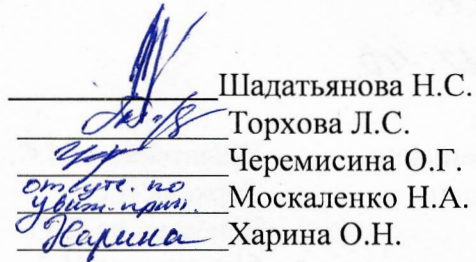 Шадатьянова Н.С.
Торхова Л.С.
Черемисина О.Г.
отсутс. по
уваж. прич. Москаленко Н.А.
Харина Харина О.Н.